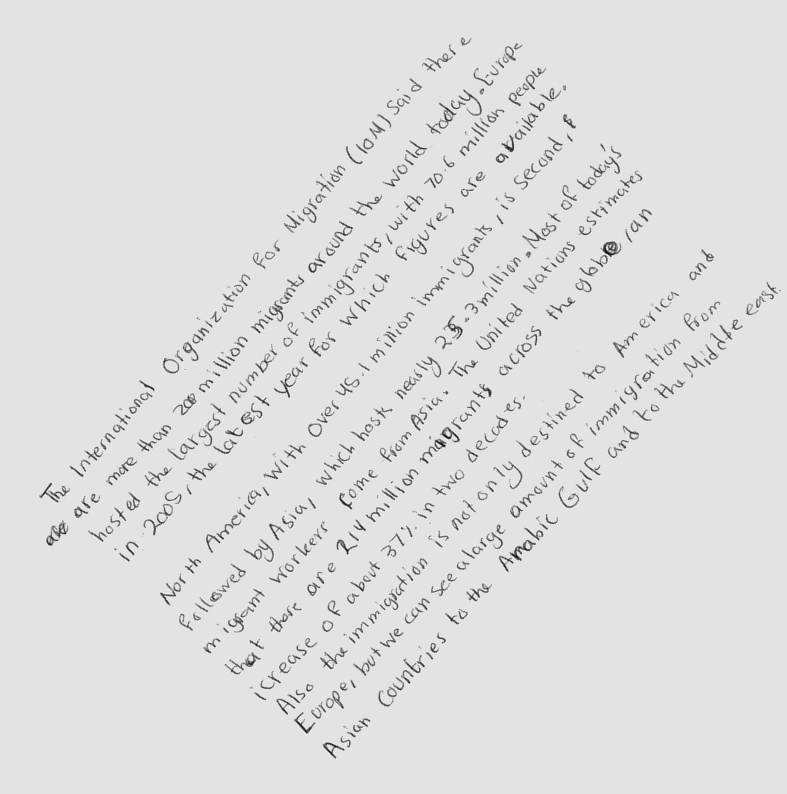 The International Organization For Migration (IOM) Said there
are more than 200 million migrants around the world today. Europe
hosted the largest number of immigrants, with 70.6 million people
in 2005, the latest year for which figures are available.
North America, with over 45.1 million immigrants, is second,
followed by Asia, which hosts nearly 25.3 million. Most of today's
migrant workers come from Asia. The United Nations estimates
that there are 214 million migrants across the globe, an
icrease of about 37% in two decades.
Also the immigration is not only destined to America and
Europe, but we can see a large amount of immigration from
Asian Countries to the Arabic Gulf and to the Middle east.